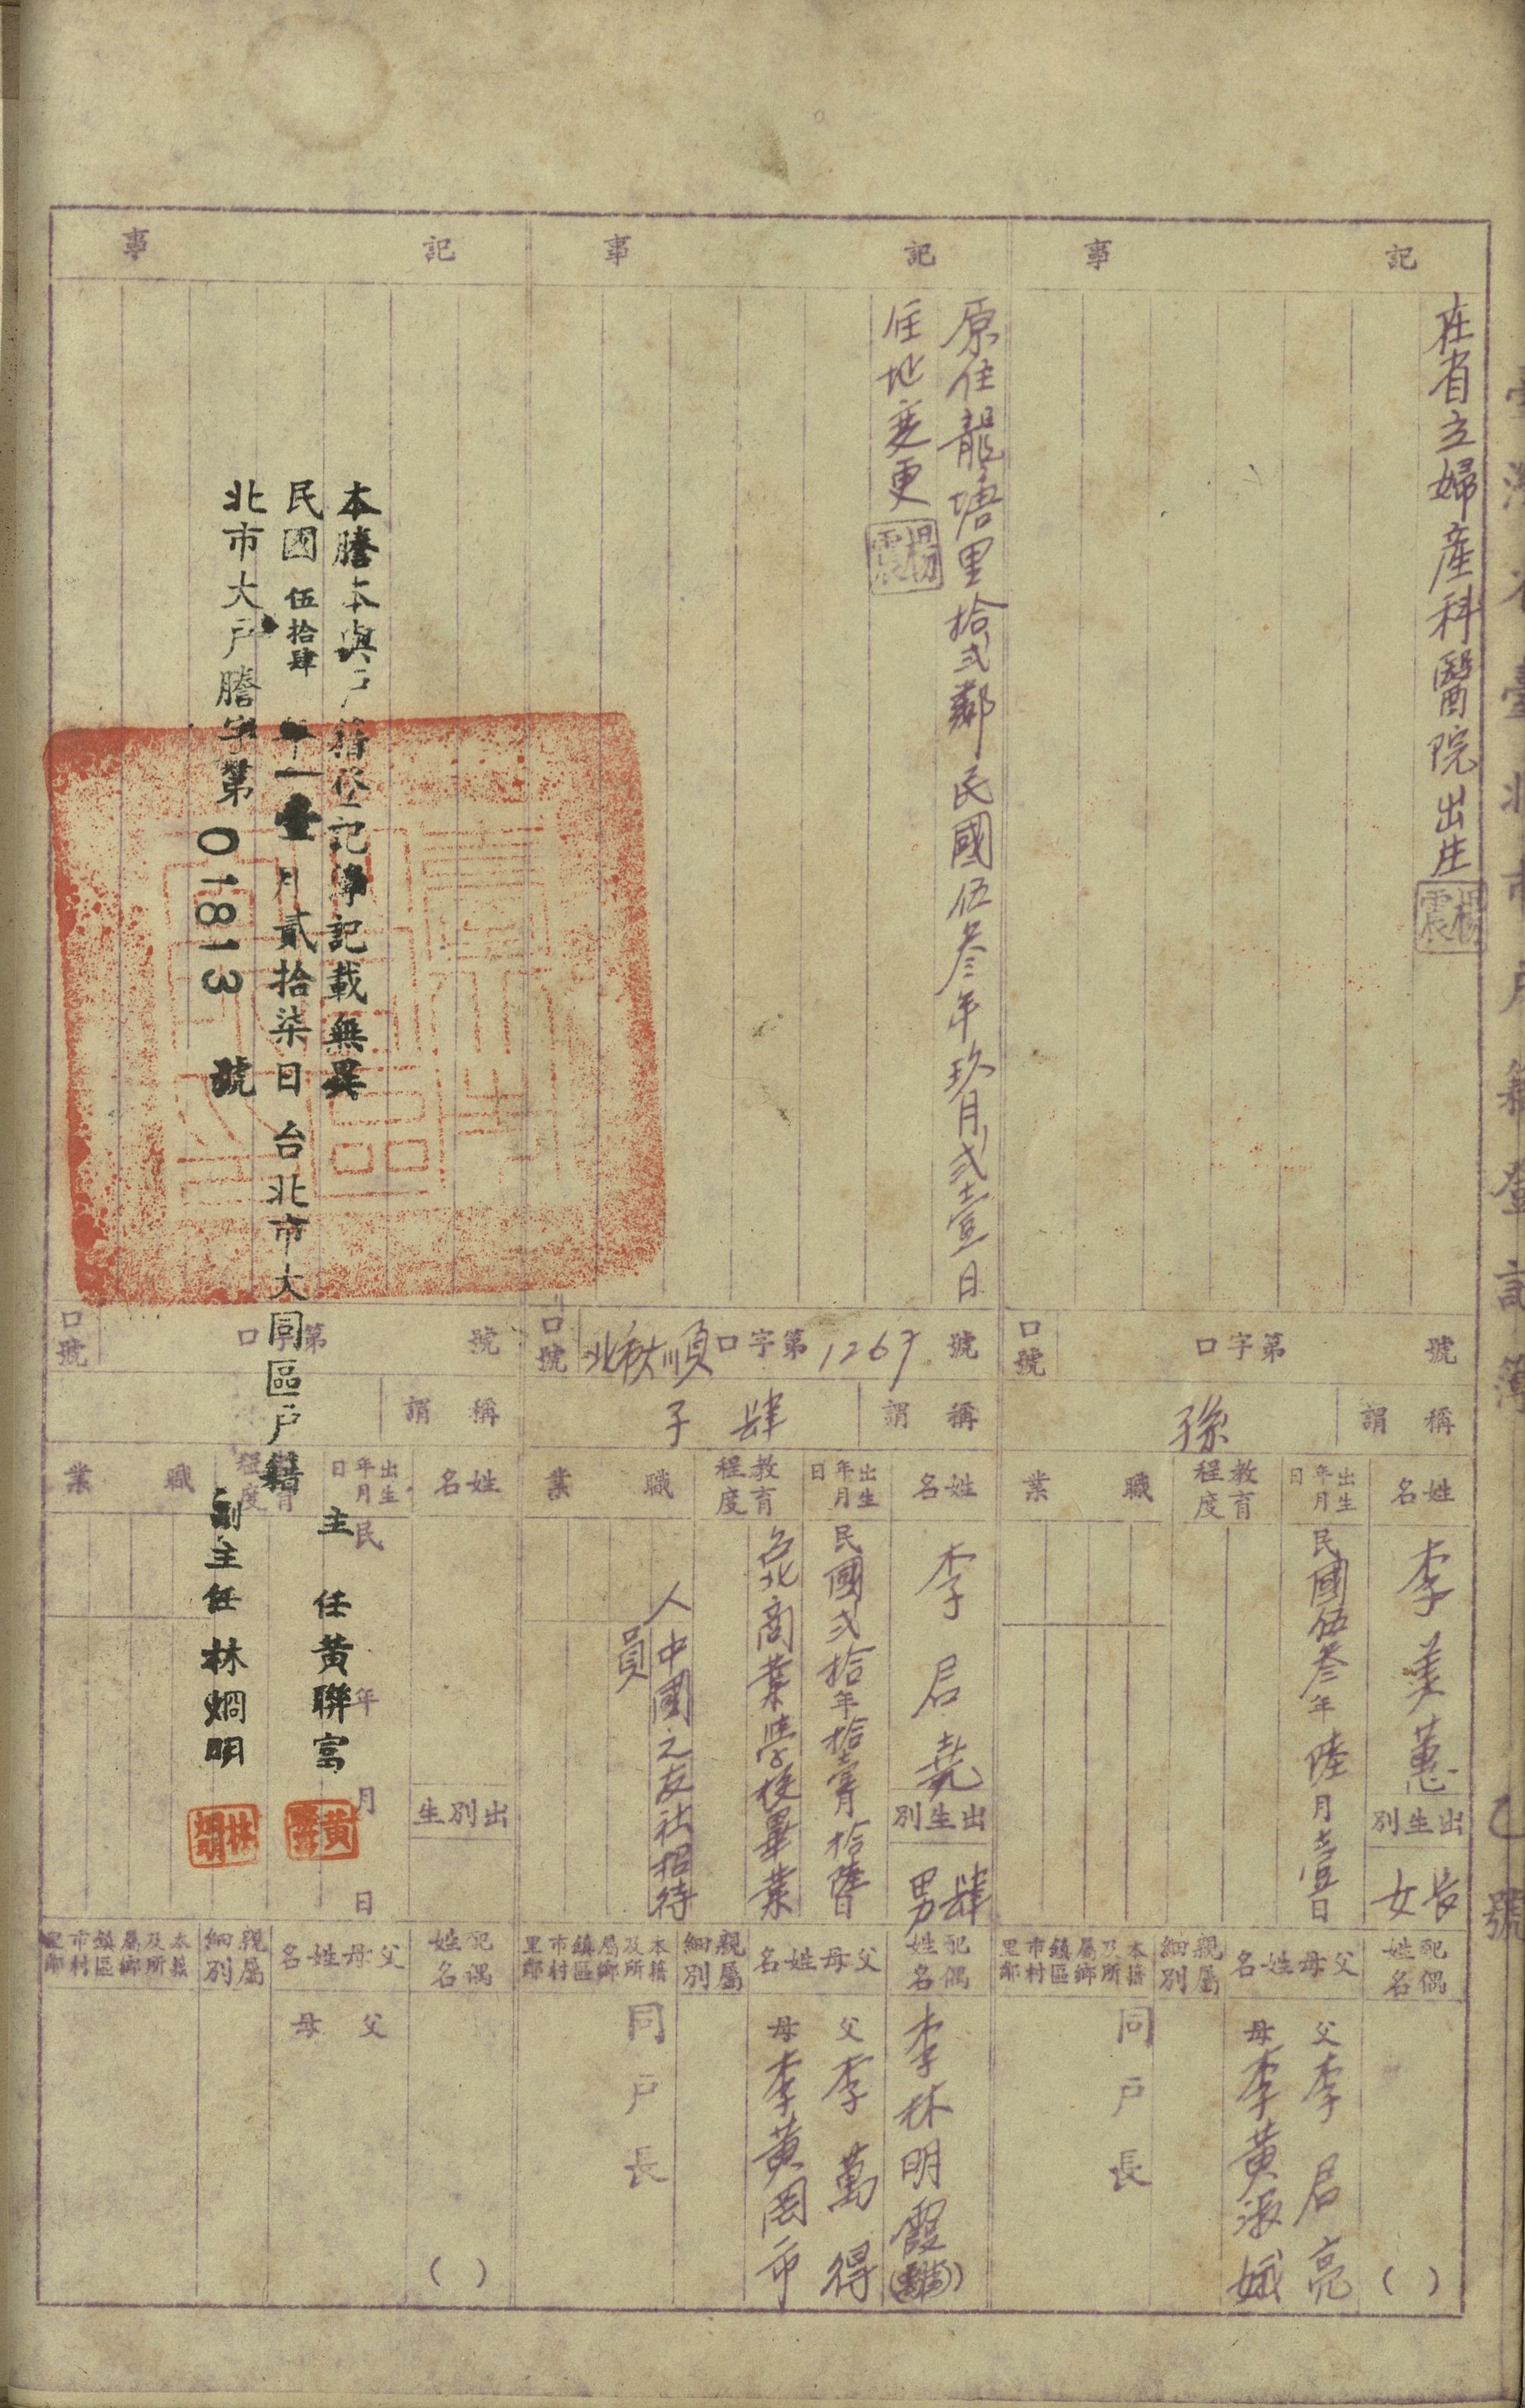 臺灣省臺北市戶籍登記簿
乙
號
記事
在省立婦產科醫院出生
楊震
口號
口字第
號
稱謂
孫
姓名
李美蕙
出生別
長女
出生年月日
民國伍叁年陸月壹日
教育程度
職業
配偶姓名
( )
父母姓名
父李君亮
母李黃淑娥
親屬細別
本籍及所屬鄉鎮區市村里鄰
同戶長
記事
原住龍塘里拾弍鄰民國伍叁年玖月弍壹日
住地変更
楊震
口號
口字第
號
稱謂
肆子
姓名
李君堯
出生別
肆男
出生年月日
民國弍拾年拾壹月拾陸日
教育程度
台北商業學校畢業
職業
人中國之友社招待
員
配偶姓名
李林明霞
父母姓名
父李萬得
母李黃罔市
親屬細別
本籍及所屬鄉鎮區市村里鄰
同戶長
記事
本謄本與戶籍登記簿記載無異
民國伍拾肆年壹月貳拾柒日 台北市大同區戶籍
主任黃聯富
北市大戶謄字第01813號
副主任林烱明
口號
口字第
號
稱謂
姓名
出生別
出生年月日
民 年 月 日
教育程度
職業
配偶姓名
( )
父母姓名
父
母
親屬細別
本籍及所屬鄉鎮區市村里鄰